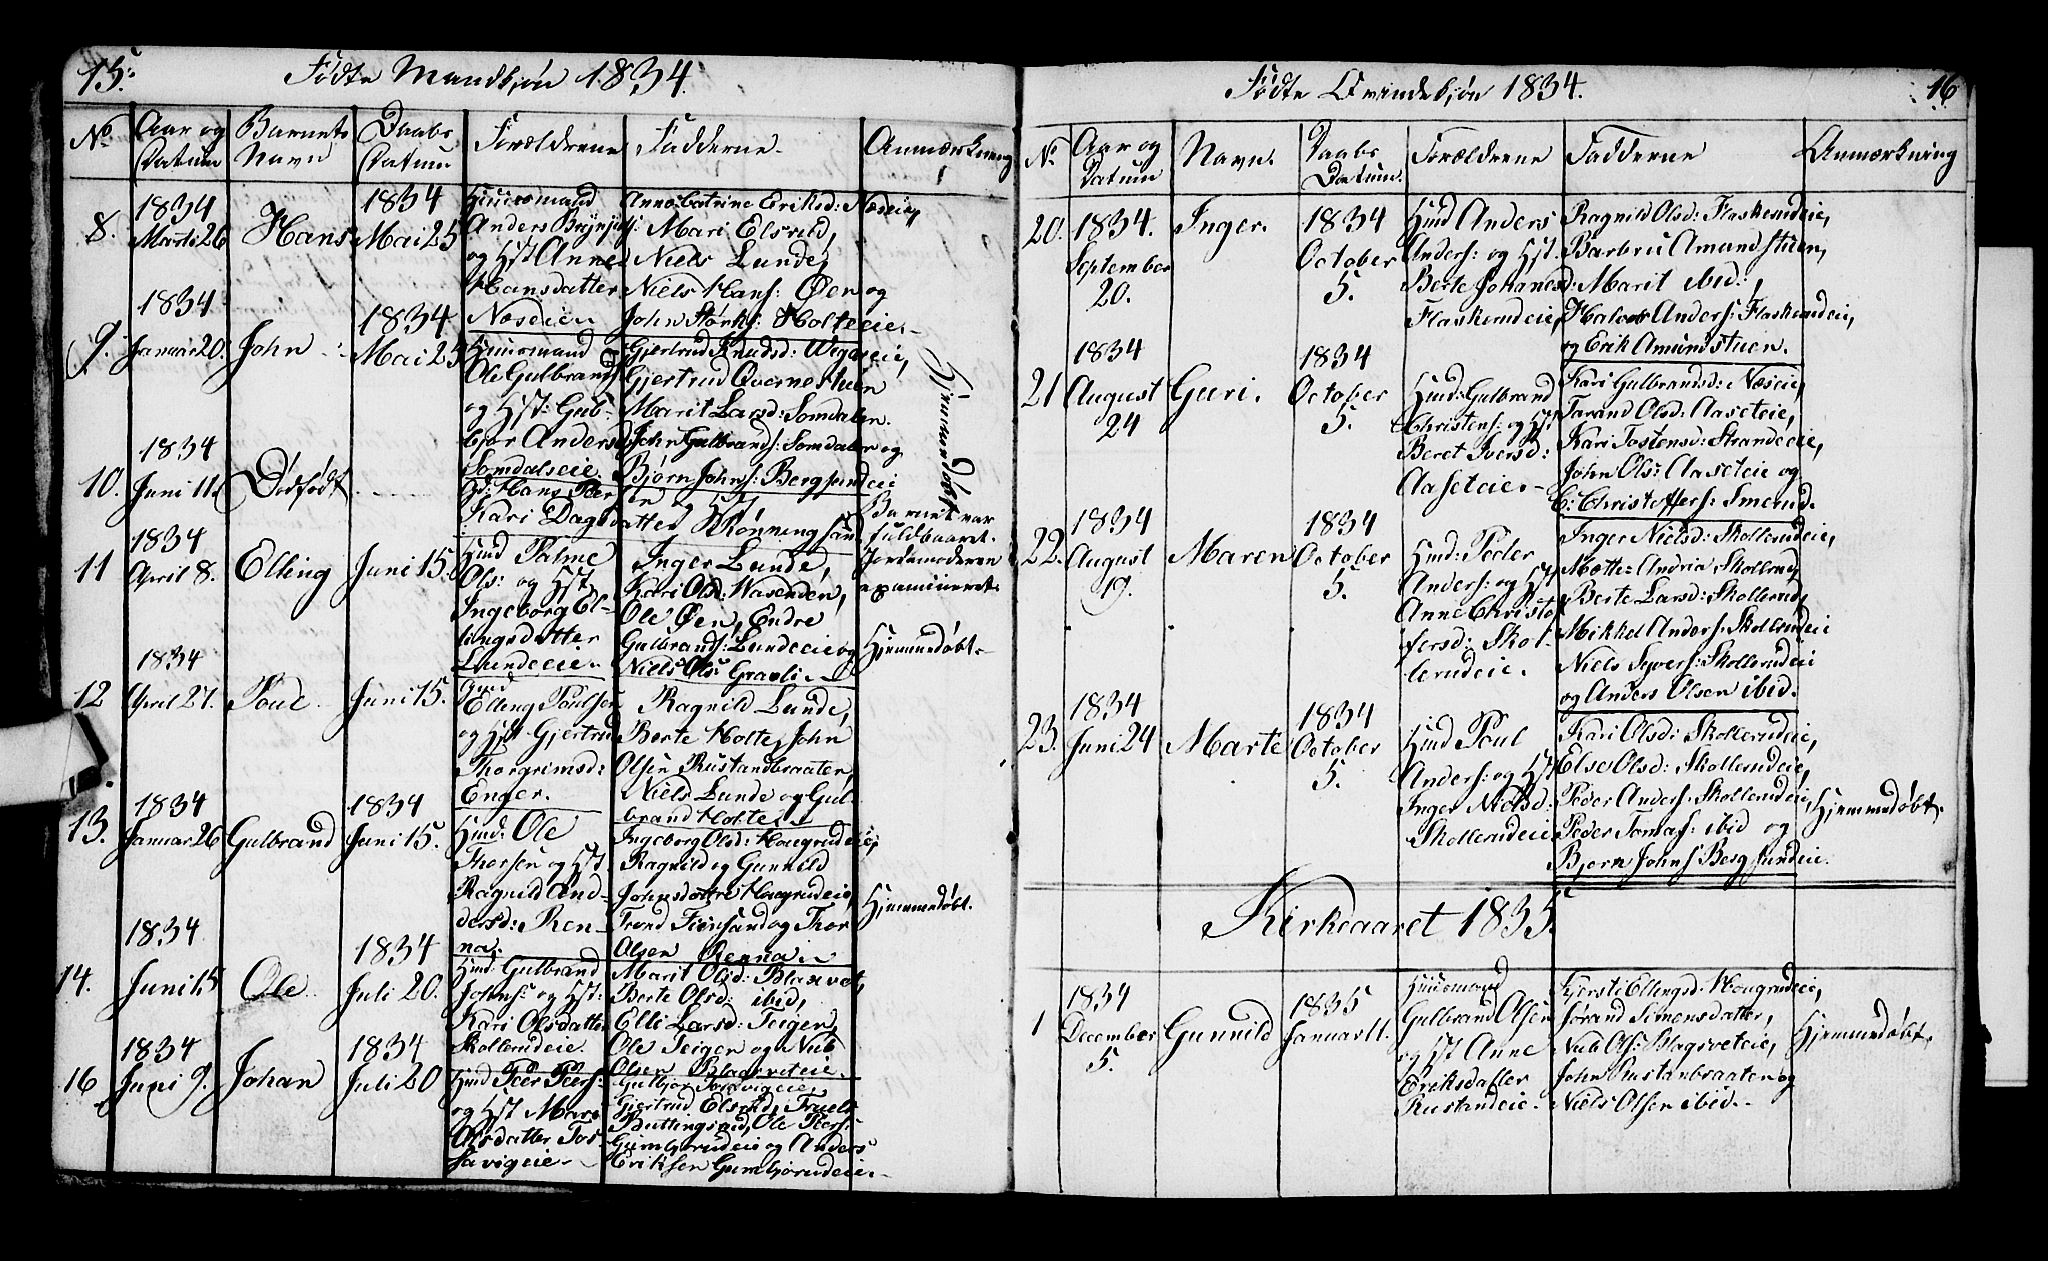 15.
Fødte Mandkjøn 1834.
No
Aar og Datum
Barnets Navn
Daabs Datum
Forældrene
Fadderne.
Anmærkning
8.
1834 Marts 26
Hans
1834 Mai 25
Huusmand
Anders Brynjulfs:
og Hst Anne
Hansdatter
Næseie
Anne Catrine Eriksd: Næseie,
Mari Elsrud,
Niels Lunde,
Niels Hans: Øen og
John Størks: Holteeie.
9.
1834 Januar 20.
John
1834 Mai 25
Huusmand
Ole Gulbrands
og Hst: Gub-
bjør Andersd
Somdalseie
Gjertrud Knudsd: Wigeseie,
Gjertrud Qvernestuen
Marit Larsd: Somdalen.
John Gulbrands: Somdalen og
Bjørn Johns: Bergsundeie
Hjemmedøbt
10.
1834 Juni 11
Dødfødt
Gd: Hans Peer
sen og Hst
Kari Dagsdatter Rønningsand
Barnet var
fuldbaaret.
Jordemoderen
examineret
11
1834 April 8.
Elling
Juni 15.
Hmd Palme
Ols: og Hst
Ingeborg El-
lingsdatter
Lundeeie.
Inger Lunde,
Kari Olsd: Wasenden,
Ole Øen, Endre
Gulbrands: Lundeeie og
Niels Ols: Gravli.
Hjemmedøbt
12
1834 April 27.
Poul
Juni 15.
Gmd
Elling Poulsen
og Hst Gjertrud
Thorgrimsd:
Enger.
Ragnild Lunde,
Berte Holte, John
Olsen Rustandbraaten,
Niels Lunde og Gul-
brand Holte.
13.
1834 Januar 26
Gulbrand
1834 Juni 15.
Hmd: Ole
Thorsen og Hst
Ragnild And-
dersd: Ren-
na.
Ingeborg Olsd: Hougrudeie,
Ragnild og Gunnild
Johnsdøttre Hougrudeie
Trond Finsand og Thor
Olsen Renna.
Hjemmedøbt.
14.
1834 Juni 15
Ole
1834 Juli 20.
Hmd: Gulbrand
Johns: og Hst:
Kari Olsdatter
Skollerudeie.
Marit Olsd: Blaxvet,
Berte Olsd: ibid,
Elli Larsd: Teigen,
Ole Teigen og Nub
Olsen Blagsveteie.
16
1834 Juni 9.
Johan
1834 Juli 20
Hmd Peer Peers:
og Hst Mari
Olsdatter Tos-
savigeie.
Gulbjør Tosavigeie,
Gjertrud Elsrud, Truels
Buttingsrud, Ole Peers:
Gumhjørudeie og Anders
Eriksen Gumhjørudeie.
16
Fødte Qvindekjøn 1834.
No
Aar og Datum
Navn.
Daabs Datum.
Forældrene
Fadderne
Anmærkning
20.
1834. September 20.
Inger.
1834 October 5.
Hmd Anders
Anders: og Hst.
Berte Johanesd:
Flaskerudeie,
Ragnild Olsd: Flaskerudeie,
Barbru Amundstuen,
Marit ibid:,
Halvor Anders: Flaskerudeie,
og Erik Amundstuen.
21
1834 August 24
Guri.
1834 October 5.
Hmd: Gulbrand
Christens: og Hst
Beret Iversd:
Aaseteie.
Kari Gulbrandsd: Næseie,
Tarand Olsd: Aaseteie,
Kari Tostensd: Strandeeie,
John Ols: Aaseteie og
C: Christoffers: Smerud.
22.
1834 August 19.
Maren
1834 October 5.
Hmd: Peder
Anders: og Hst
Anne Christo-
fersd: Skol-
lerudeie.
Inger Nielsd: Skollerudeie,
Mætte Andria Skollerud,
Berte Larsd: Skollerud,
Mikkel Anders: Skollerudeie
Niels Syvers: Skollerudeie
og Anders Olsen ibid.
23.
1834 Juni 24
Marte
1834 October 5.
Hmd Poul
Anders: og Hst
Inger Nielsd:
Skollerudeie
Kari Olsd: Skollerudeie,
Else Olsd: Skollerudeie,
Peder Anders: Skollerudeie,
Peder Tomas: ibid og
Bjørn Johns Bergsundeie.
Hjemmedøbt.
Kirkeaaret 1835.
1
1834 December 5.
Gunnild
1835 Januar 11.
Huusmand
Gulbrand Olsen
og Hst Anne
Eriksdatter
Rustandeie.
Kjersti Ellingsd: Hougrudeie,
Jørand Simonsdatter,
Nub Ols: Blagsveteie,
John Rustanbraaten og
Niels Olsen ibid.
Hjemmedøbt.